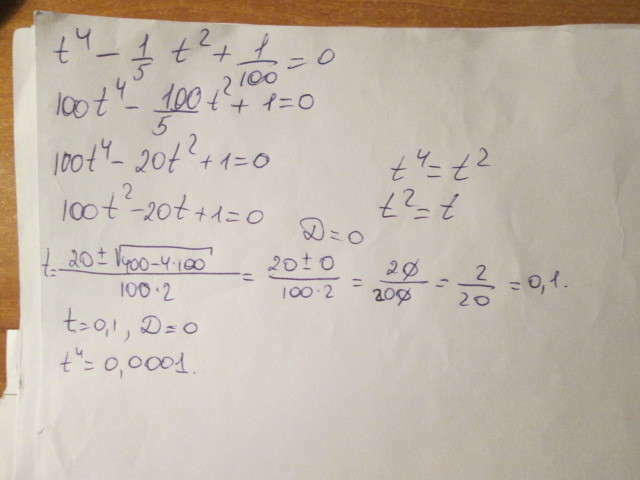 t⁴ - 1/5 t² + 1/100 = 0
100t⁴ - 100/5 t² + 1 = 0
100t⁴ - 20t² + 1 = 0
t⁴ = t²
100t² - 20t + 1 = 0
t² = t
D = 0
t = (20 ± √(400 - 4·100))/(100·2) = (20 ± 0)/(100·2) = 20/200 = 2/20 = 0,1.
t = 0,1, D = 0
t⁴ = 0,0001.